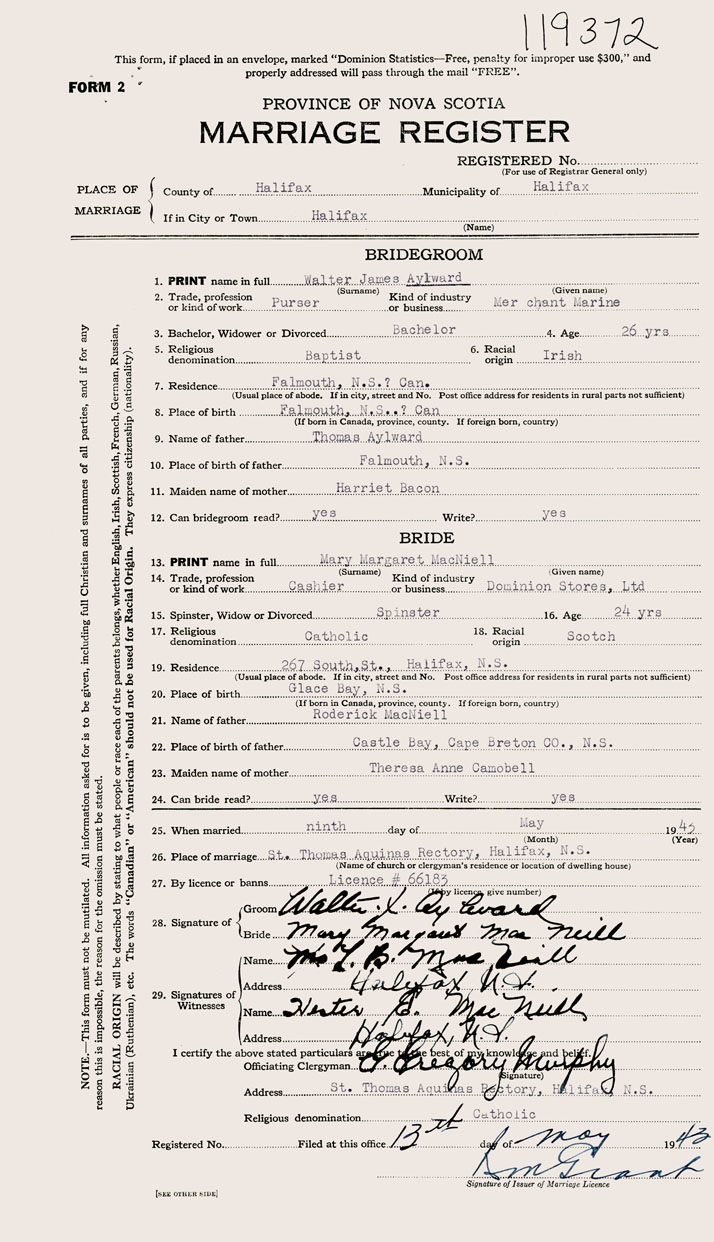 119372
This form, if placed in an envelope, marked "Dominion Statistics—Free, penalty for improper use $300," and
properly addressed will pass through the mail "FREE".
FORM 2
PROVINCE OF NOVA SCOTIA
MARRIAGE REGISTER
REGISTERED No.
(For use of Registrar General only)
PLACE OF MARRIAGE
County of Halifax Municipality of Halifax
If in City or Town Halifax
(Name)
BRIDEGROOM
1. PRINT name in full Walter James Aylward
(Surname) (Given name)
2. Trade, profession or kind of work Purser Kind of industry or business Mer chant Marine
3. Bachelor, Widower or Divorced Bachelor 4. Age 26 yrs
5. Religious denomination Baptist 6. Racial origin Irish
7. Residence Falmouth, N.S.? Can.
(Usual place of abode. If in city, street and No. Post office address for residents in rural parts not sufficient)
8. Place of birth Falmouth, N.S..? Can
(If born in Canada, province, county. If foreign born, country)
9. Name of father Thomas Aylward
10. Place of birth of father Falmouth, N.S.
11. Maiden name of mother Harriet Bacon
12. Can bridegroom read? yes Write? yes
BRIDE
13. PRINT name in full Mary Margaret MacNiell
(Surname) (Given name)
14. Trade, profession or kind of work Cashier Kind of industry or business Dominion Stores, Ltd
15. Spinster, Widow or Divorced Spinster 16. Age 24 yrs
17. Religious denomination Catholic 18. Racial origin Scotch
19. Residence 267 South,St., Halifax, N.S.
(Usual place of abode. If in city, street and No. Post office address for residents in rural parts not sufficient)
20. Place of birth Glace Bay, N.S.
(If born in Canada, province, county. If foreign born, country)
21. Name of father Roderick MacNiell
22. Place of birth of father Castle Bay, Cape Breton CO., N.S.
23. Maiden name of mother Theresa Anne Camobell
24. Can bride read? yes Write? yes
25. When married ninth day of May 1945
(Month) (Year)
26. Place of marriage St. Thomas Aquinas Rectory, Halifax, N.S.
(Name of church or clergyman's residence or location of dwelling house)
27. By licence or banns Licence # 66183
(If by licence, give number)
28. Signature of
Groom Walter J. Aylward
Bride Mary Margaret MacNeill
29. Signatures of Witnesses
Name MacNeill
Address Halifax N.S.
Name Hester MacNeill
Address Halifax, N.S.
I certify the above stated particulars are true to the best of my knowledge and belief.
Officiating Clergyman Gregory Murphy
(Signature)
Address St. Thomas Aquinas Rectory, Halifax, N.S.
Religious denomination Catholic
Registered No. Filed at this office 13th day of May 1943
Grant
Signature of Issuer of Marriage Licence
[SEE OTHER SIDE]
NOTE.—This form must not be mutilated. All information asked for is to be given, including full Christian and surnames of all parties, and if for any
reason this is impossible, the reason for the omission must be stated.
RACIAL ORIGIN will be described by stating to what people or race each of the parents belongs, whether English, Irish, Scottish, French, German, Russian,
Ukrainian (Ruthenian), etc. The words "Canadian" or "American" should not be used for Racial Origin. They express citizenship (nationality).